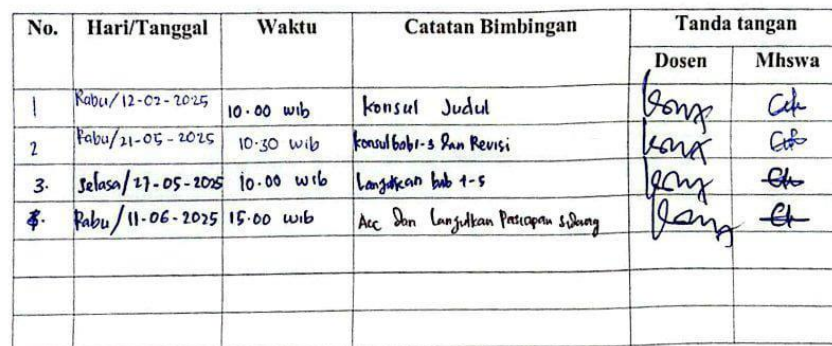 No. Hari/Tanggal Waktu Catatan Bimbingan Tanda tangan
Dosen Mhswa
1 Rabu/12-02-2025 10.00 wib Konsul Judul
2 Rabu/21-05-2025 10.30 wib Konsul bab 1-3 dan Revisi
3. Selasa/27-05-2025 10.00 wib Lanjutkan bab 4-5
Rabu/11-06-2025 15.00 wib Acc dan Lanjutkan Persiapan sidang